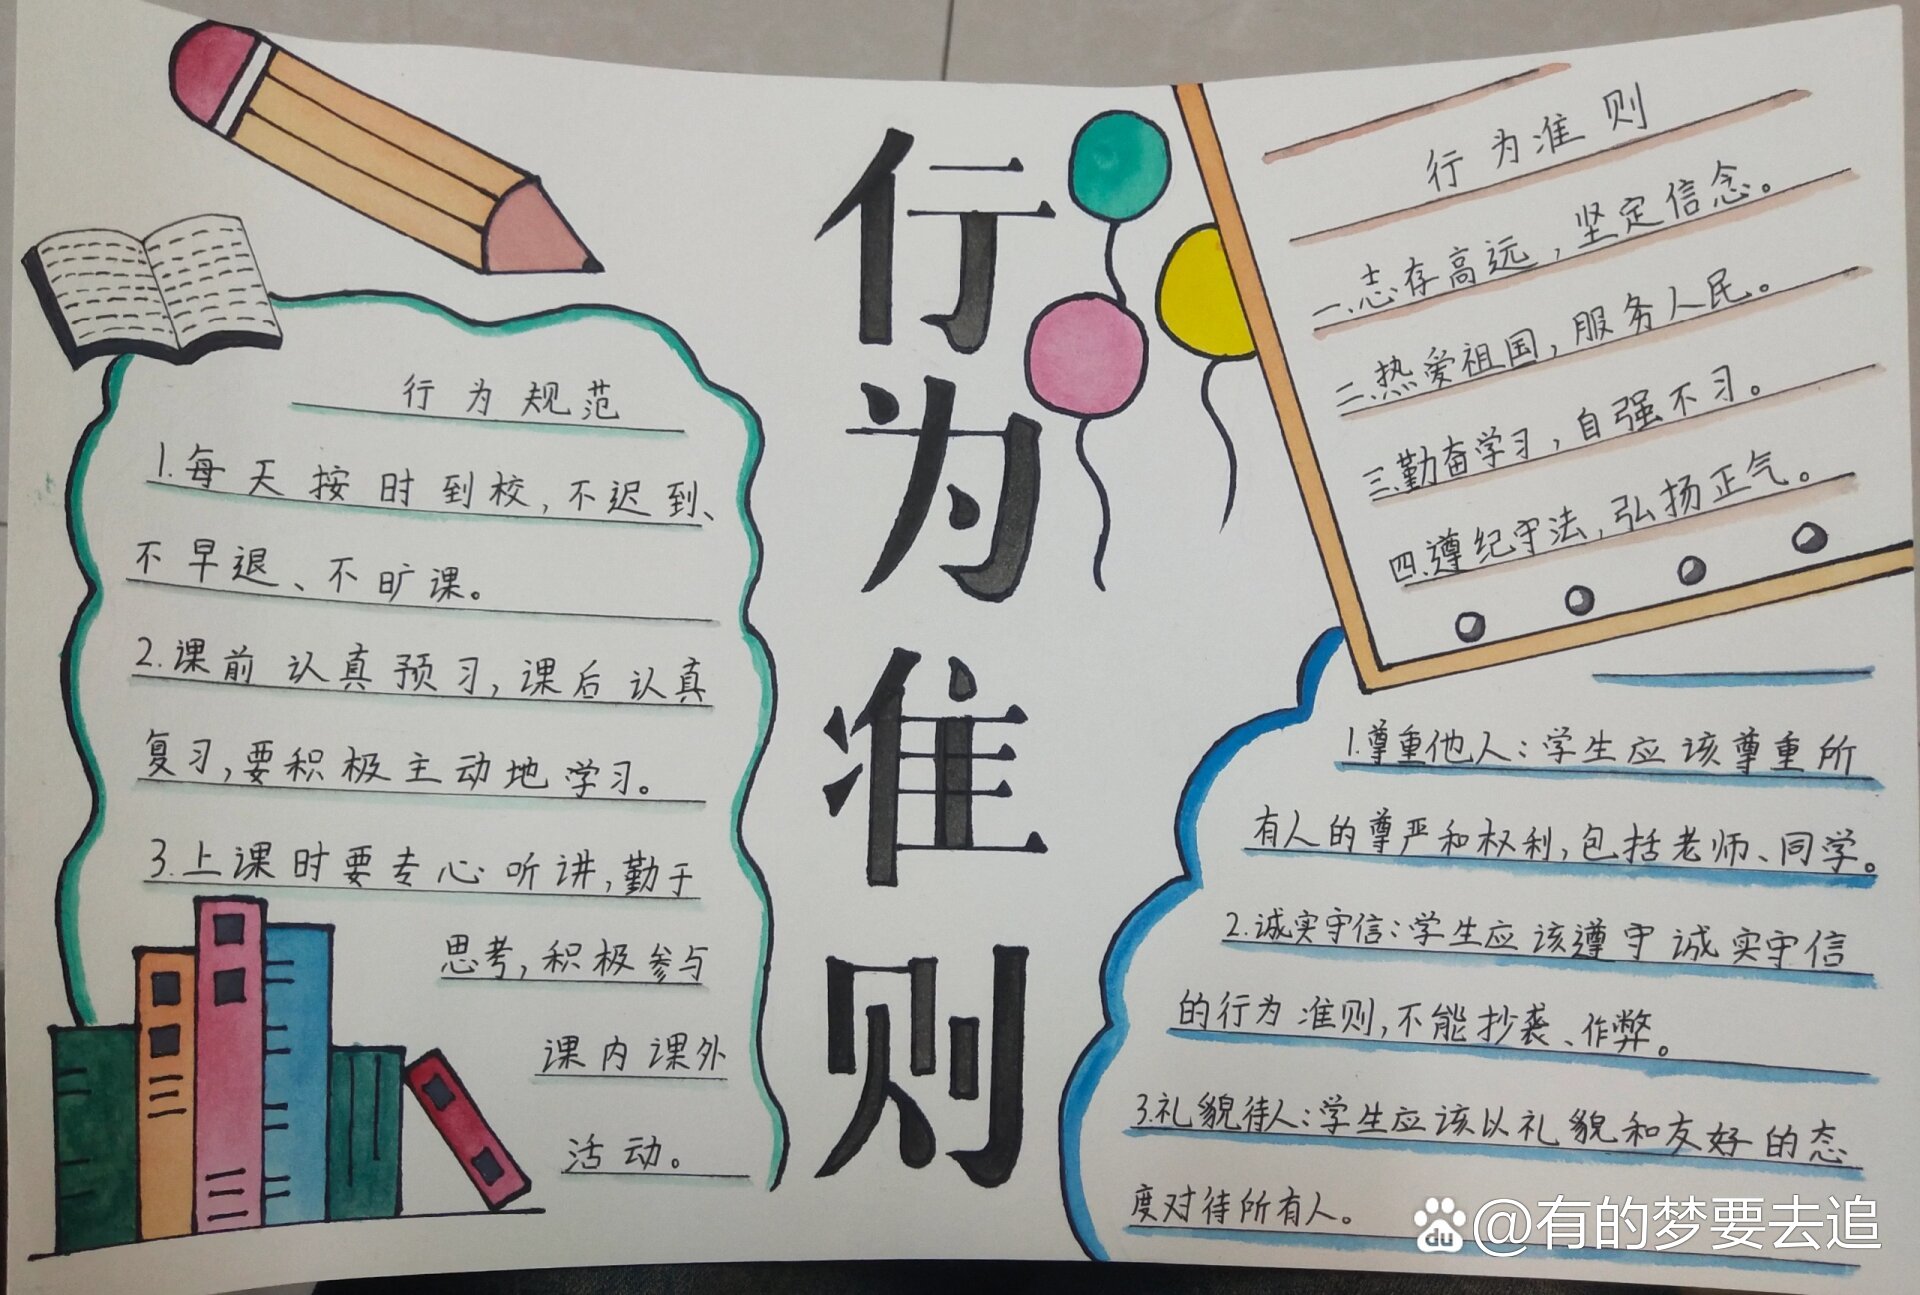 行为准则
行为规范
1.每天按时到校,不迟到、
不早退、不旷课。
2.课前认真预习,课后认真
复习,要积极主动地学习。
3.上课时要专心听讲,勤于
思考,积极参与
课内课外
活动。
行为准则
一.志存高远,坚定信念。
二.热爱祖国,服务人民。
三.勤奋学习,自强不习。
四.遵纪守法,弘扬正气。
1.尊重他人:学生应该尊重所
有人的尊严和权利,包括老师、同学。
2.诚实守信:学生应该遵守诚实守信
的行为准则,不能抄袭、作弊。
3.礼貌待人:学生应该以礼貌和友好的态
度对待所有人。
du @有的梦要去追